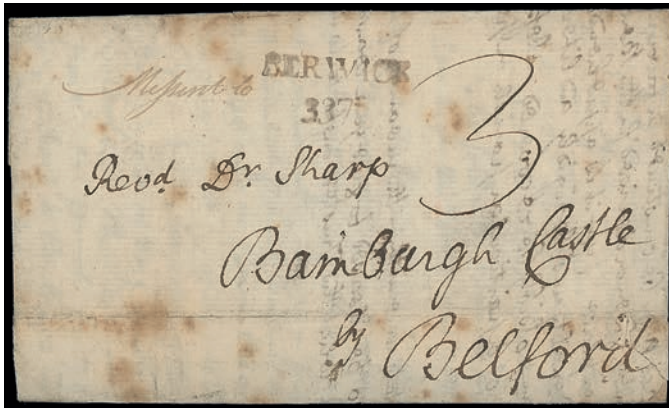 Missent to
BERWICK
337
3
Revd. Dr. Sharp
Bamburgh Castle
by Belford